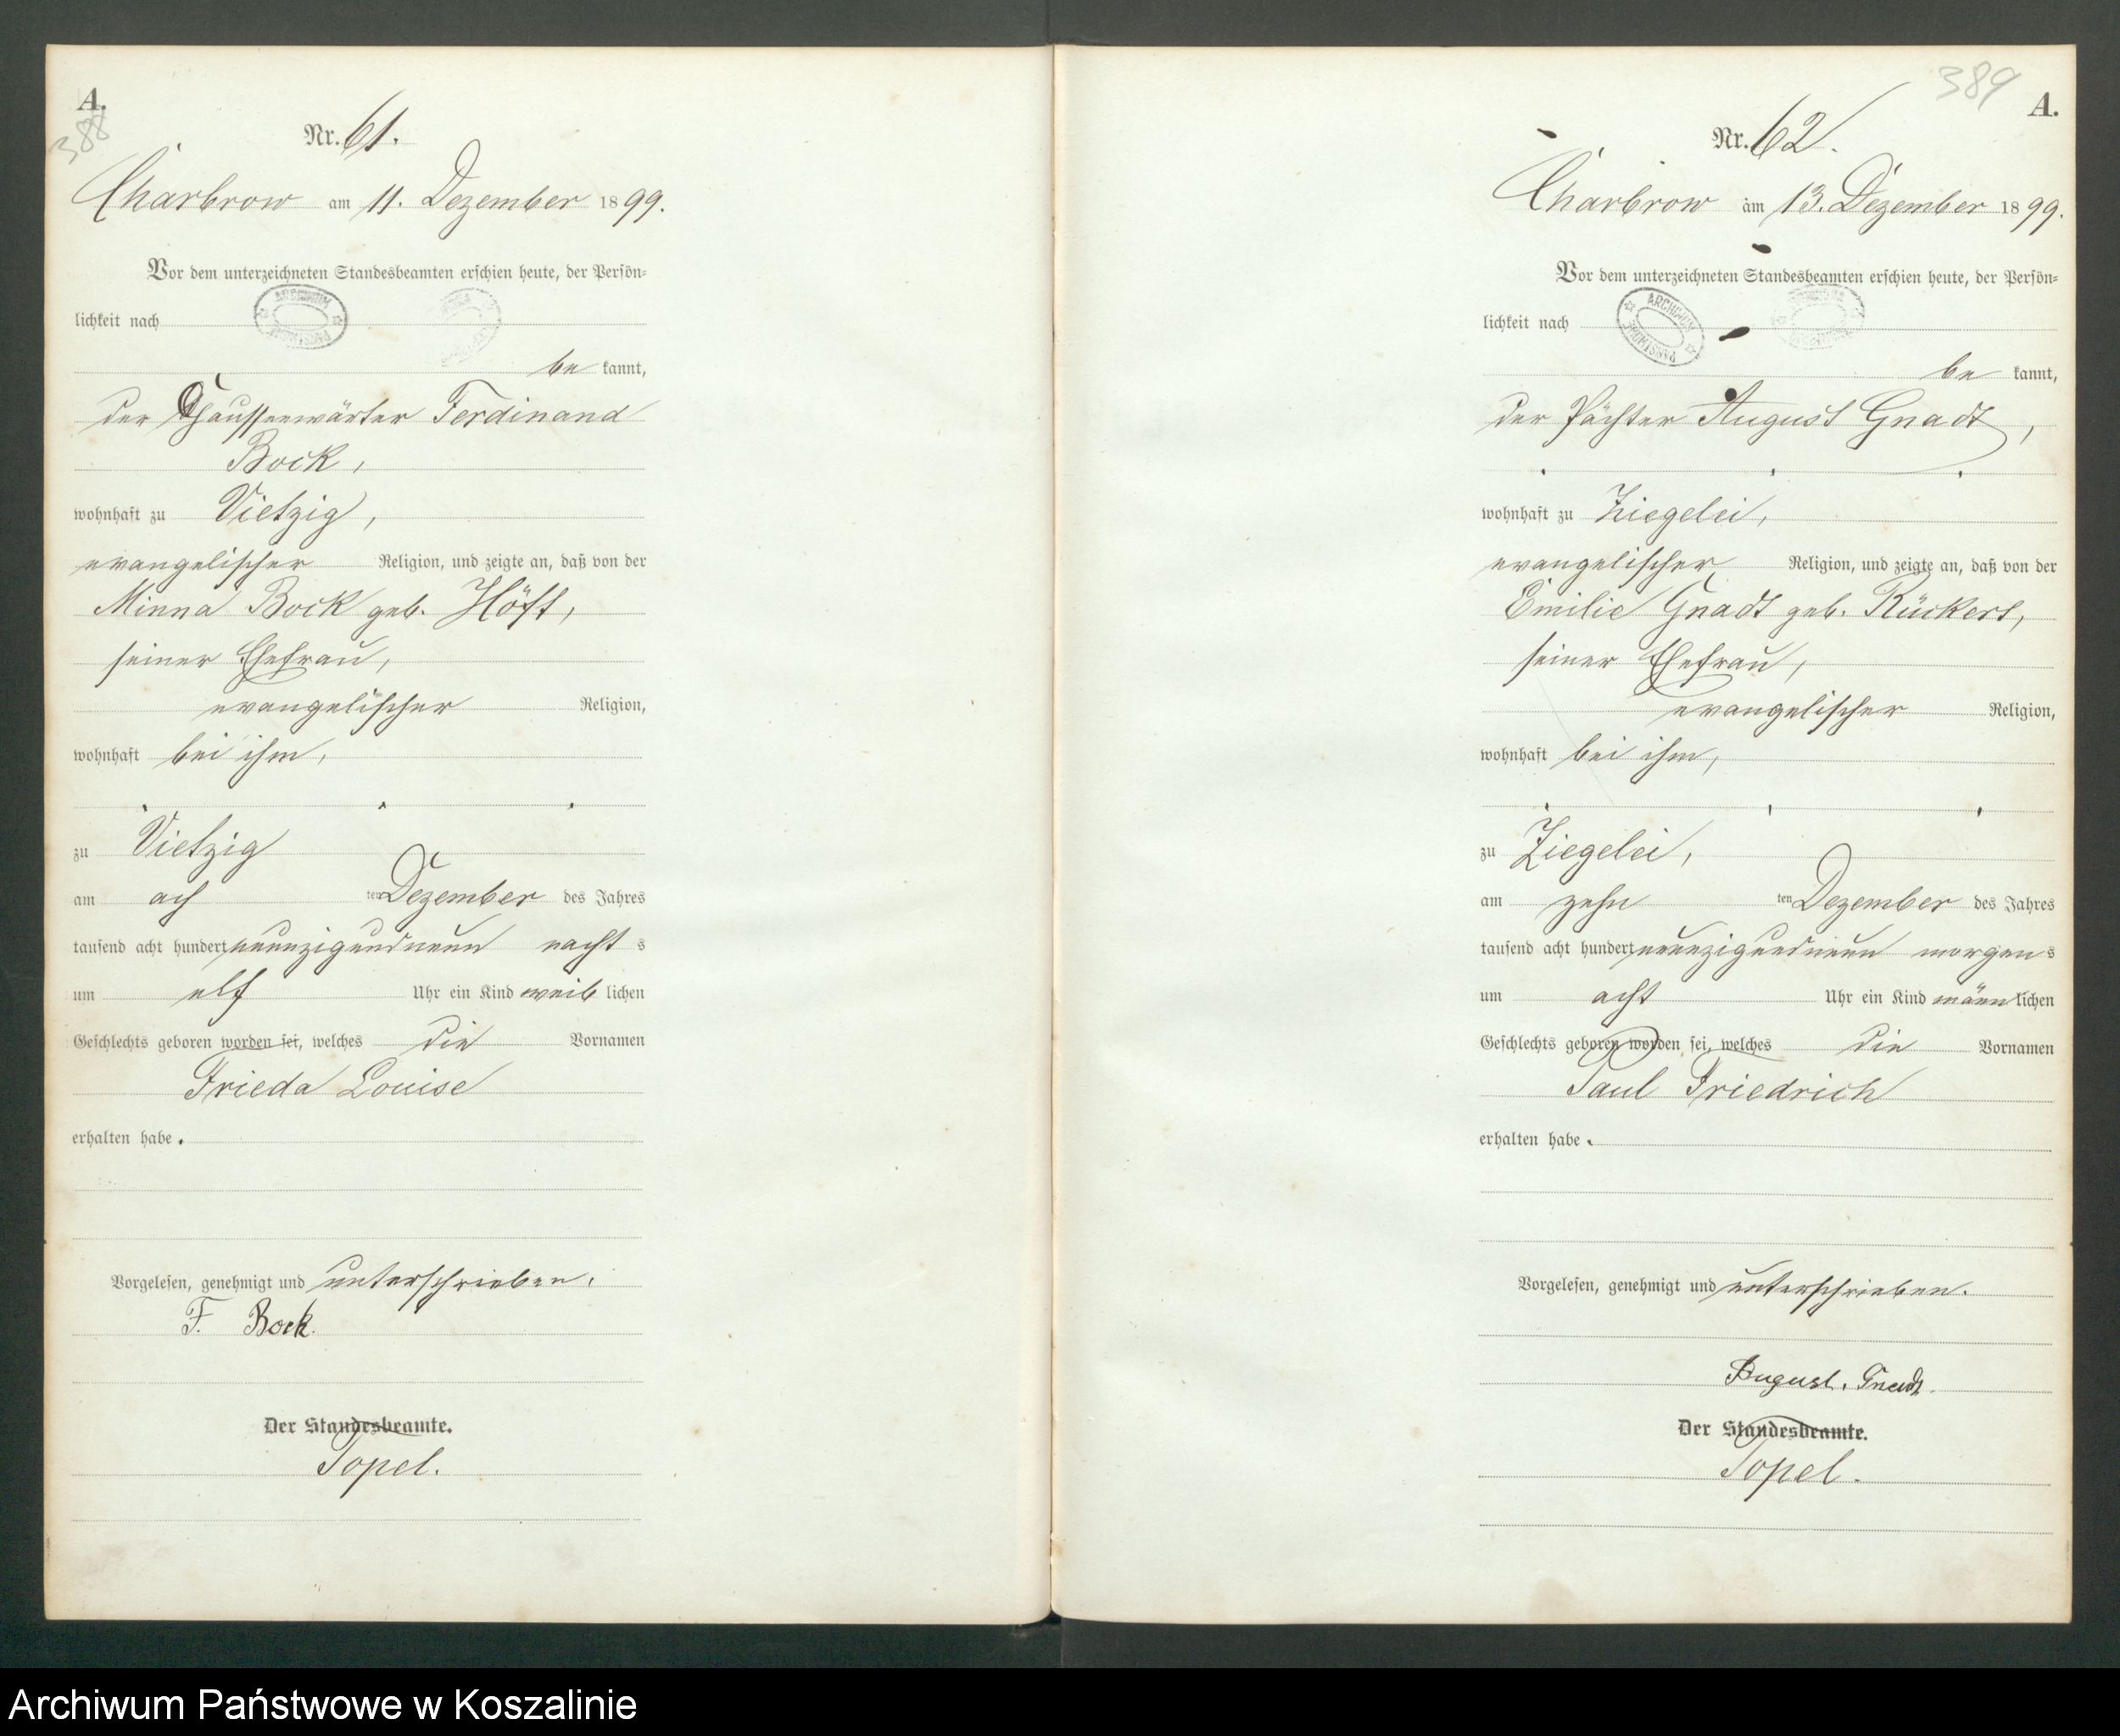 A.
388
Nr. 61.
Charbrow am 11. Dezember 1899.
Vor dem unterzeichneten Standesbeamten erschien heute, der Persön-
lichkeit nach
ARCHIWUM
be kannt,
der Chausseewärter Ferdinand
Bock,
wohnhaft zu Vietzig,
evangelischer Religion, und zeigte an, daß von der
Minna Bock geb. Höft,
seiner Ehefrau,
evangelischer Religion,
wohnhaft bei ihm,
zu Vietzig
am ach ten Dezember des Jahres
tausend acht hundert neunzigundneun nacht s
um elf Uhr ein Kind weib lichen
Geschlechts geboren worden sei, welches die Vornamen
Frieda Louise
erhalten habe.
Vorgelesen, genehmigt und unterschrieben.
F. Bock.
Der Standesbeamte.
Topel.
389
A.
Nr. 62.
Charbrow am 13. Dezember 1899.
Vor dem unterzeichneten Standesbeamten erschien heute, der Persön-
lichkeit nach
ARCHIWUM
be kannt,
der Pächter August Gnadt,
wohnhaft zu Ziegelei,
evangelischer Religion, und zeigte an, daß von der
Emilie Gnadt geb. Rückert,
seiner Ehefrau,
evangelischer Religion,
wohnhaft bei ihm,
zu Ziegelei,
am zehn ten Dezember des Jahres
tausend acht hundert neunzigundneun morgen s
um acht Uhr ein Kind männ lichen
Geschlechts geboren worden sei, welches die Vornamen
Paul Friedrich
erhalten habe.
Vorgelesen, genehmigt und unterschrieben.
August. Gnadt.
Der Standesbeamte.
Topel.
Archiwum Państwowe w Koszalinie